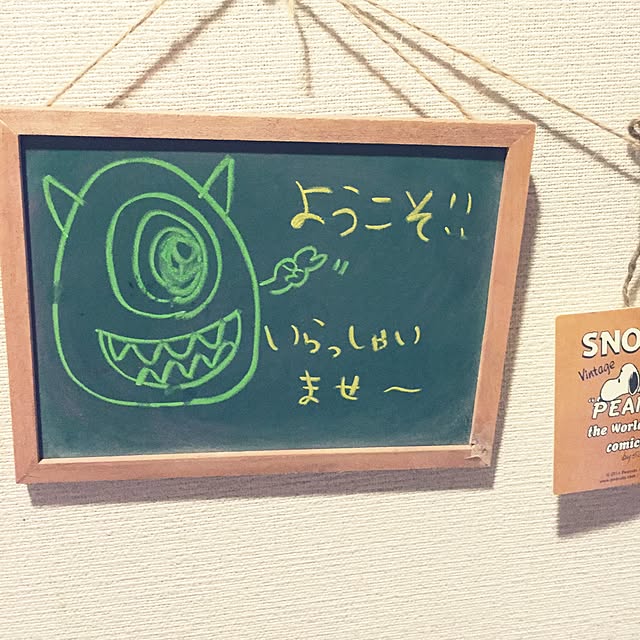 ようこそ!!
いらっしゃい
ませ〜
SNO
Vintage
PEAN
the World
comic